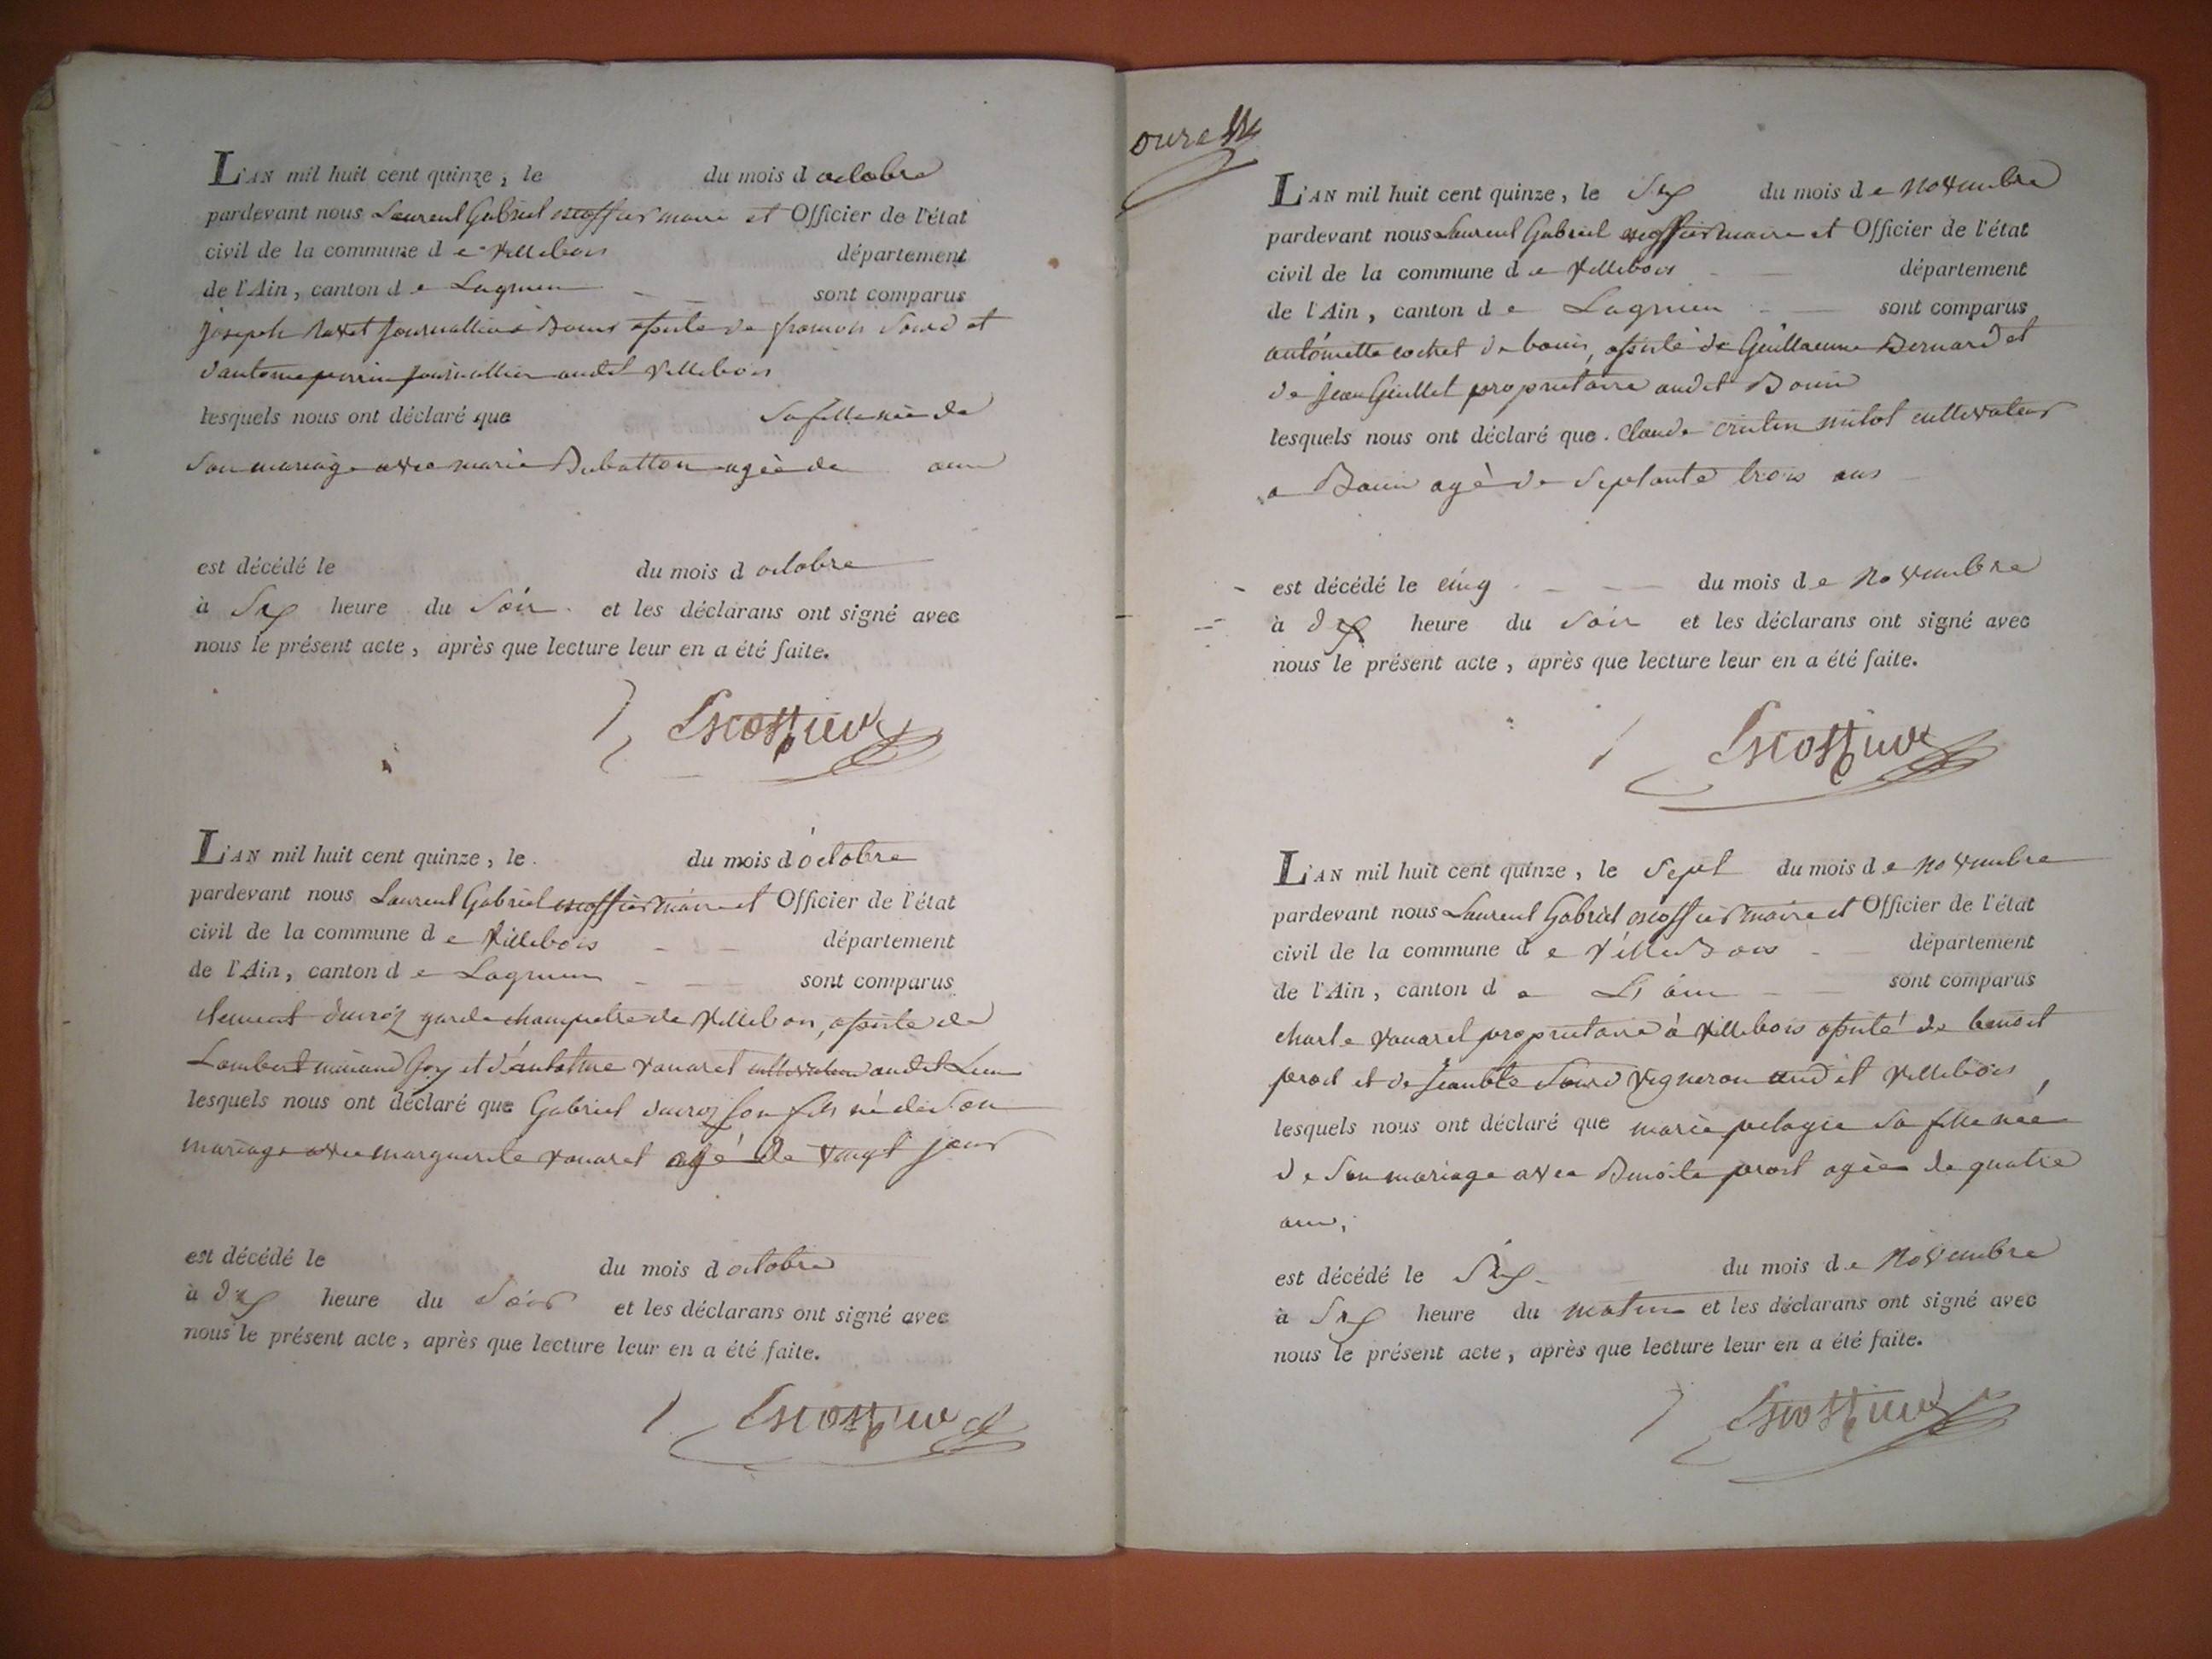 L'AN mil huit cent quinze, le du mois d octobre
pardevant nous Laurent Gabriel escoffier maire et Officier de l'état
civil de la commune d e Villebois département
de l'Ain, canton d e Lagnieu sont comparus
joseph ravet journallier a Bouis assisté de françois Sourd et
d'antoine perrin journallier audit Villebois
lesquels nous ont déclaré que sa fille née de
son mariage avec marie Dubatton agée de ans
est décédé le du mois d octobre
à Six heure du Soir et les déclarans ont signé avec
nous le présent acte, après que lecture leur en a été faite.
Escoffier
L'AN mil huit cent quinze, le du mois d octobre
pardevant nous Laurent Gabriel escoffier maire et Officier de l'état
civil de la commune d e Villebois département
de l'Ain, canton d e Lagnieu sont comparus
clement ducroz garde champetre de Villebois, assisté de
Lambert Goy et d'antoine vouaret cultivateur audit Lieu
lesquels nous ont déclaré que Gabriel ducroz son fils né de son
mariage avec marguerite vouaret agé de vingt jour
est décédé le du mois d octobre
à dix heure du Soir et les déclarans ont signé avec
nous le présent acte, après que lecture leur en a été faite.
Escoffier
L'AN mil huit cent quinze, le Six du mois d e novembre
pardevant nous Laurent Gabriel escoffier maire et Officier de l'état
civil de la commune d e Villebois département
de l'Ain, canton d e Lagnieu sont comparus
antoinette cochet de bouis, assisté de Guillaume Bernard et
de jean Guillet proprietaire audit Bouis
lesquels nous ont déclaré que Claude milot cultivateur
a Bouis agé de Septante trois ans
est décédé le cinq du mois d e novembre
à dix heure du Soir et les déclarans ont signé avec
nous le présent acte, après que lecture leur en a été faite.
Escoffier
L'AN mil huit cent quinze, le Sept du mois d e novembre
pardevant nous Laurent Gabriel escoffier maire et Officier de l'état
civil de la commune d e Villebois département
de l'Ain, canton d e sont comparus
charle vouaret proprietaire à Villebois assisté de benoit
prost et de Sourd vigneron audit Villebois,
lesquels nous ont déclaré que marie pelagie sa fille née
de Son mariage avec Benoite prost agée de quatre
ans,
est décédé le Six du mois d e Novembre
à Six heure du matin et les déclarans ont signé avec
nous le présent acte, après que lecture leur en a été faite.
Escoffier